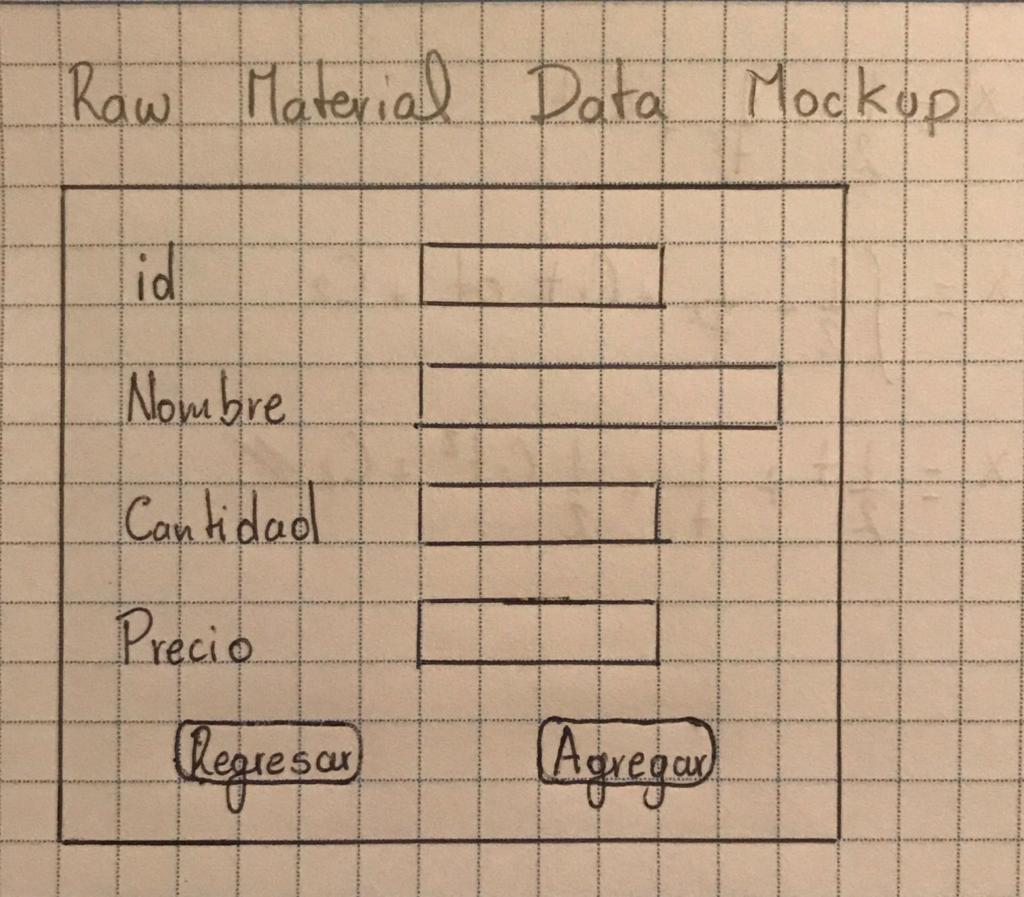 Raw Material Data Mockup
id
Nombre
Cantidad
Precio
Regresar Agregar